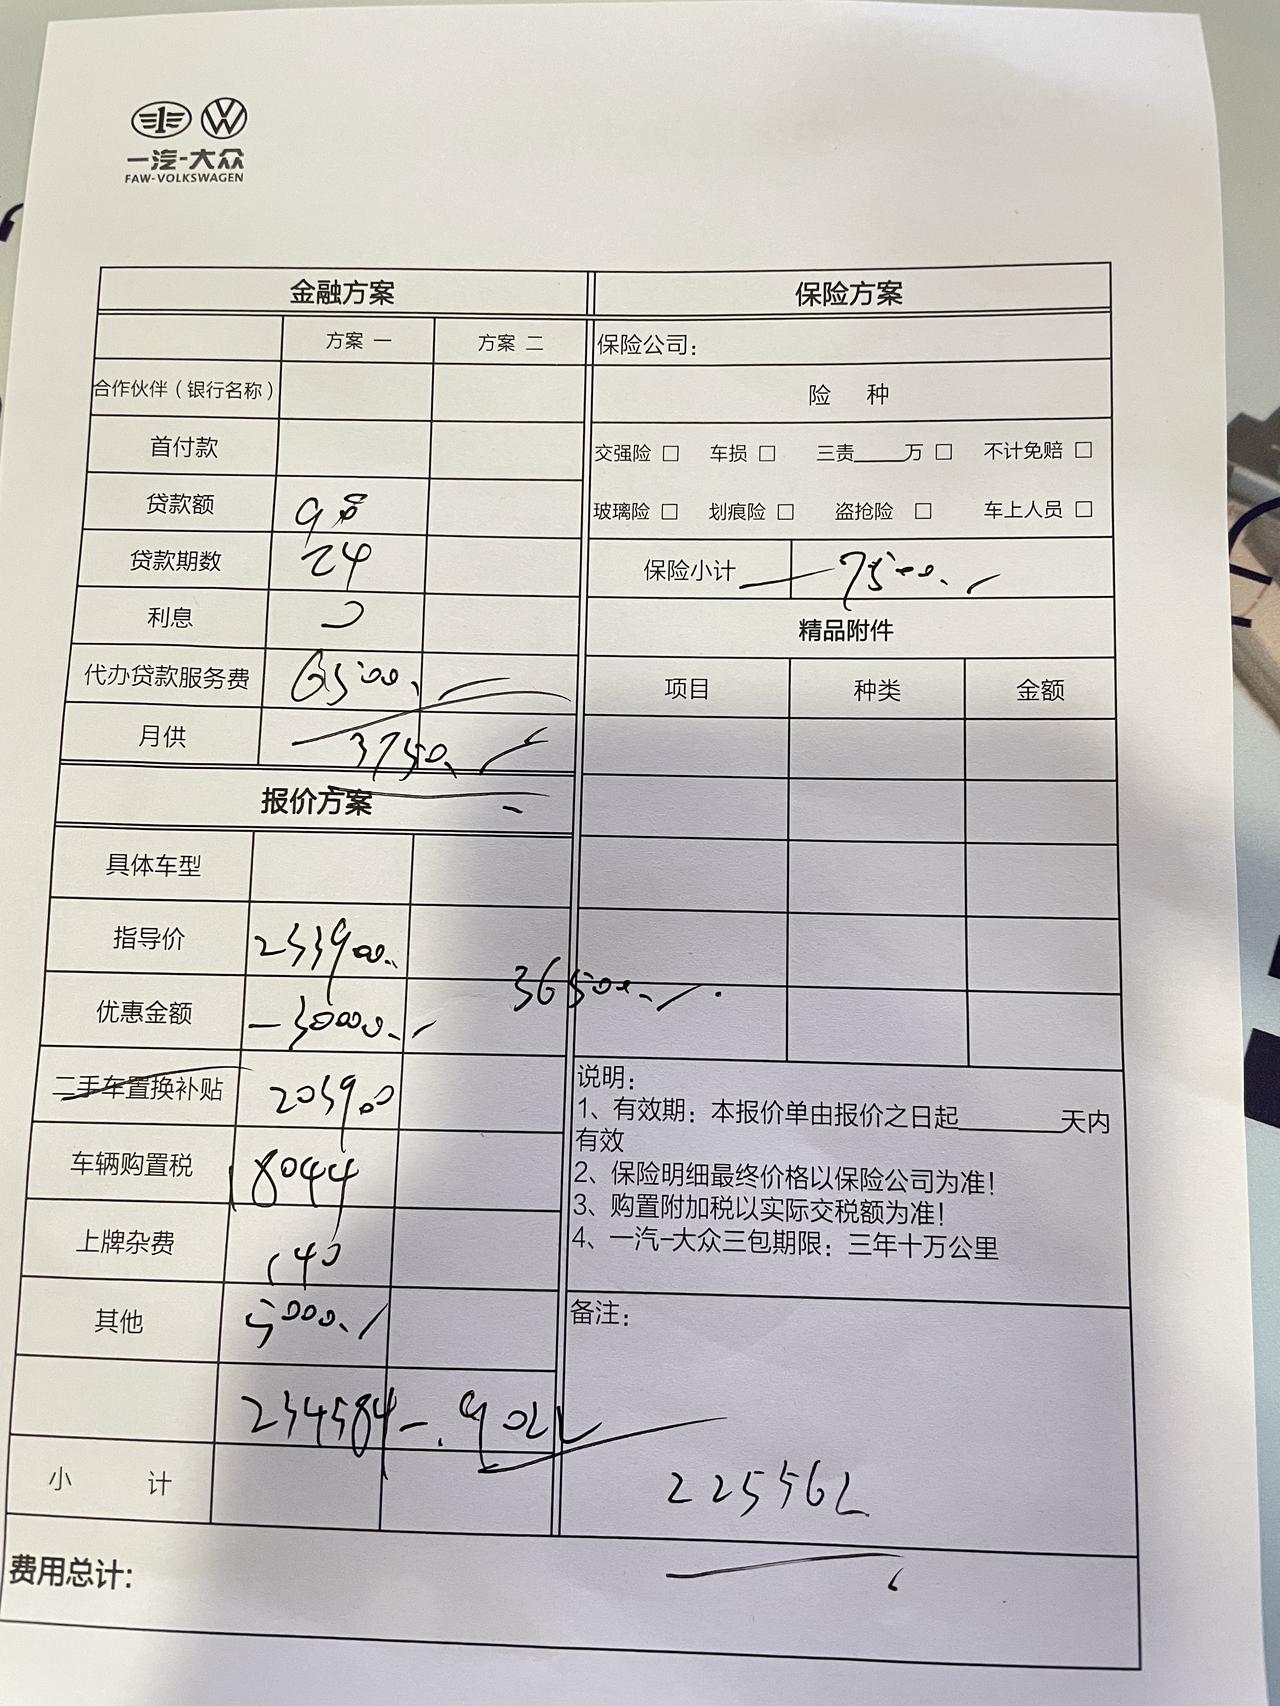 一汽-大众
FAW-VOLKSWAGEN
金融方案
方案 一 方案 二
合作伙伴（银行名称）
首付款
贷款额
贷款期数 24
利息
代办贷款服务费 6500.
月供 3750.
报价方案
具体车型
指导价 233900.
优惠金额 -30000.
36500.
二手车置换补贴 203900
车辆购置税 18044
上牌杂费 140
其他 5000.
234584 - 9022
小 计
费用总计:
保险方案
保险公司:
险 种
交强险 □ 车损 □ 三责____万 □ 不计免赔 □
玻璃险 □ 划痕险 □ 盗抢险 □ 车上人员 □
保险小计 7500.
精品附件
项目 种类 金额
说明:
1、有效期: 本报价单由报价之日起______天内
有效
2、保险明细最终价格以保险公司为准!
3、购置附加税以实际交税额为准!
4、一汽-大众三包期限: 三年十万公里
备注:
225562